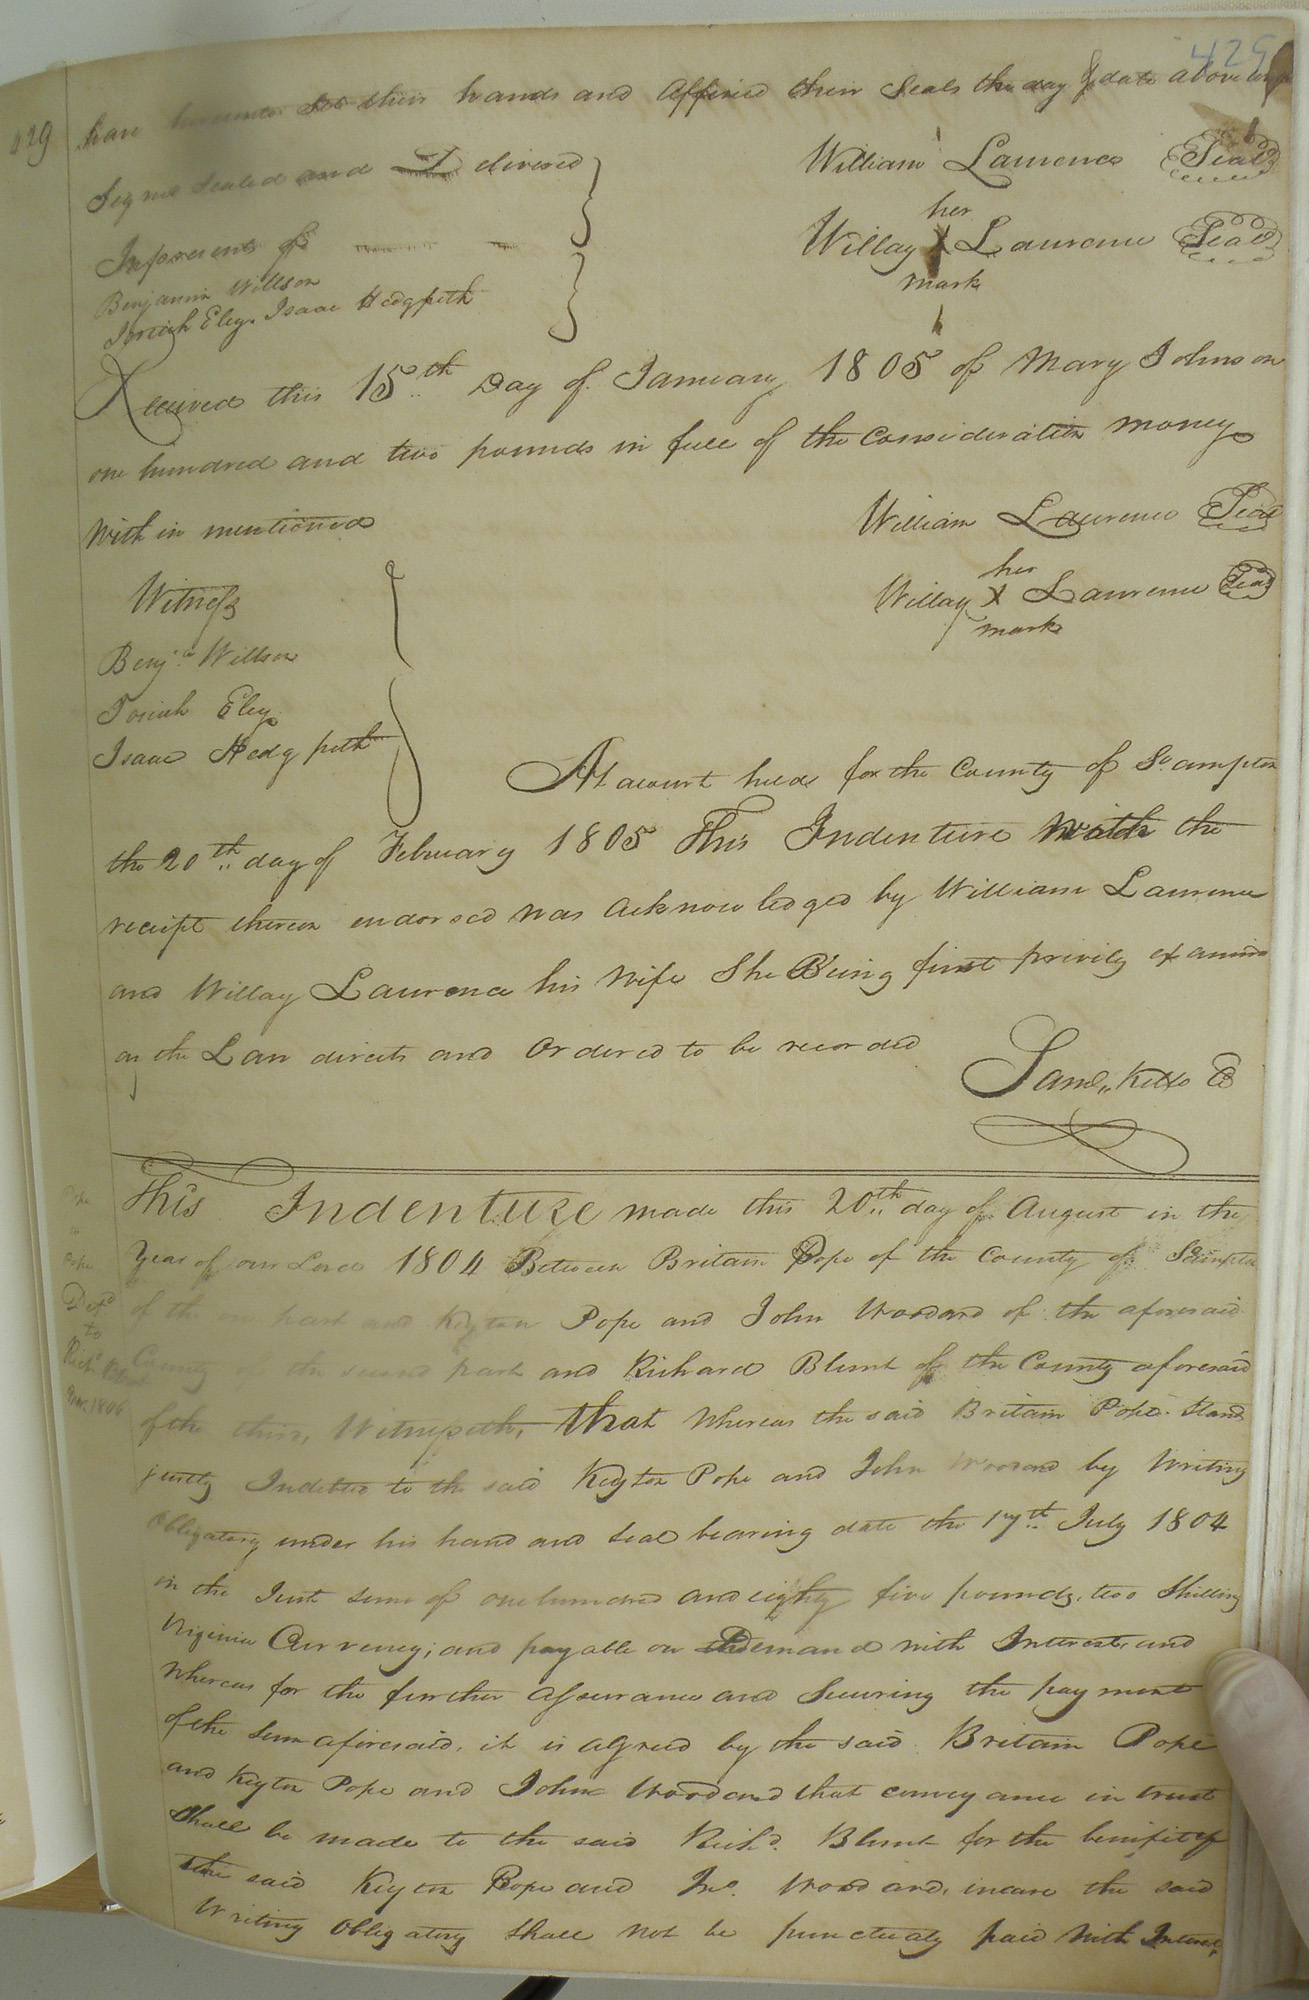 429
429
have hereunto set their hands and Affixed their Seals the day & date above
Signed Sealed and Delivered
William Laurence Seal
Inpresents of
her
Willay X Laurence Seal
mark
Benjamin Willson
Josiah Eley. Isaac Hedgpeth
Received this 15th Day of January 1805 of Mary Johnson
one hundred and two pounds in full of the Consideration money
With in mentioned
William Laurence Seal
her
Willay X Laurence Seal
mark
Witness
Benja Willson
Josiah Eley
Isaac Hedgpeth
At acourt held for the County of So.ampton
the 20th day of February 1805 This Indenture With the
receipt thereon endorsed was Acknowledged by William Laurence
and Willay Laurence his Wife She Being first privily examined
as the Law directs and Ordered to be recorded
Saml,, Kello CC
This Indenture made this 20th day of August in the
Year of our Lord 1804 Between Britain Pope of the County of So.ampton
of the one part and Keyton Pope and John Woodard of the aforesaid
County of the second part and Richard Blunt of the County aforesaid
of the third, Witnesseth, That Whereas the said Britain Pope Stand
justly Indebted to the said Keyton Pope and John Woodard by Writing
Obligatory under his hand and Seal bearing date the 17th July 1804
in the Just sum of one hundred and eighty five pounds, two Shilling
Virginia Currency, and payable on Demand with Interest, and
Whereas for the further Assurance and Securing the payment
of the Sum aforesaid, it is agreed by the said Britain Pope
and Keyton Pope and John Woodard that conveyance in trust
Shall be made to the said Richd. Blunt for the benifit of
the said Keyton Pope and Jno. Woodard, incase the said
Writing Obligatory Shall not be punctualy paid With Interest,
Pope
Pope
Deed
to
Richd Blunt
1806